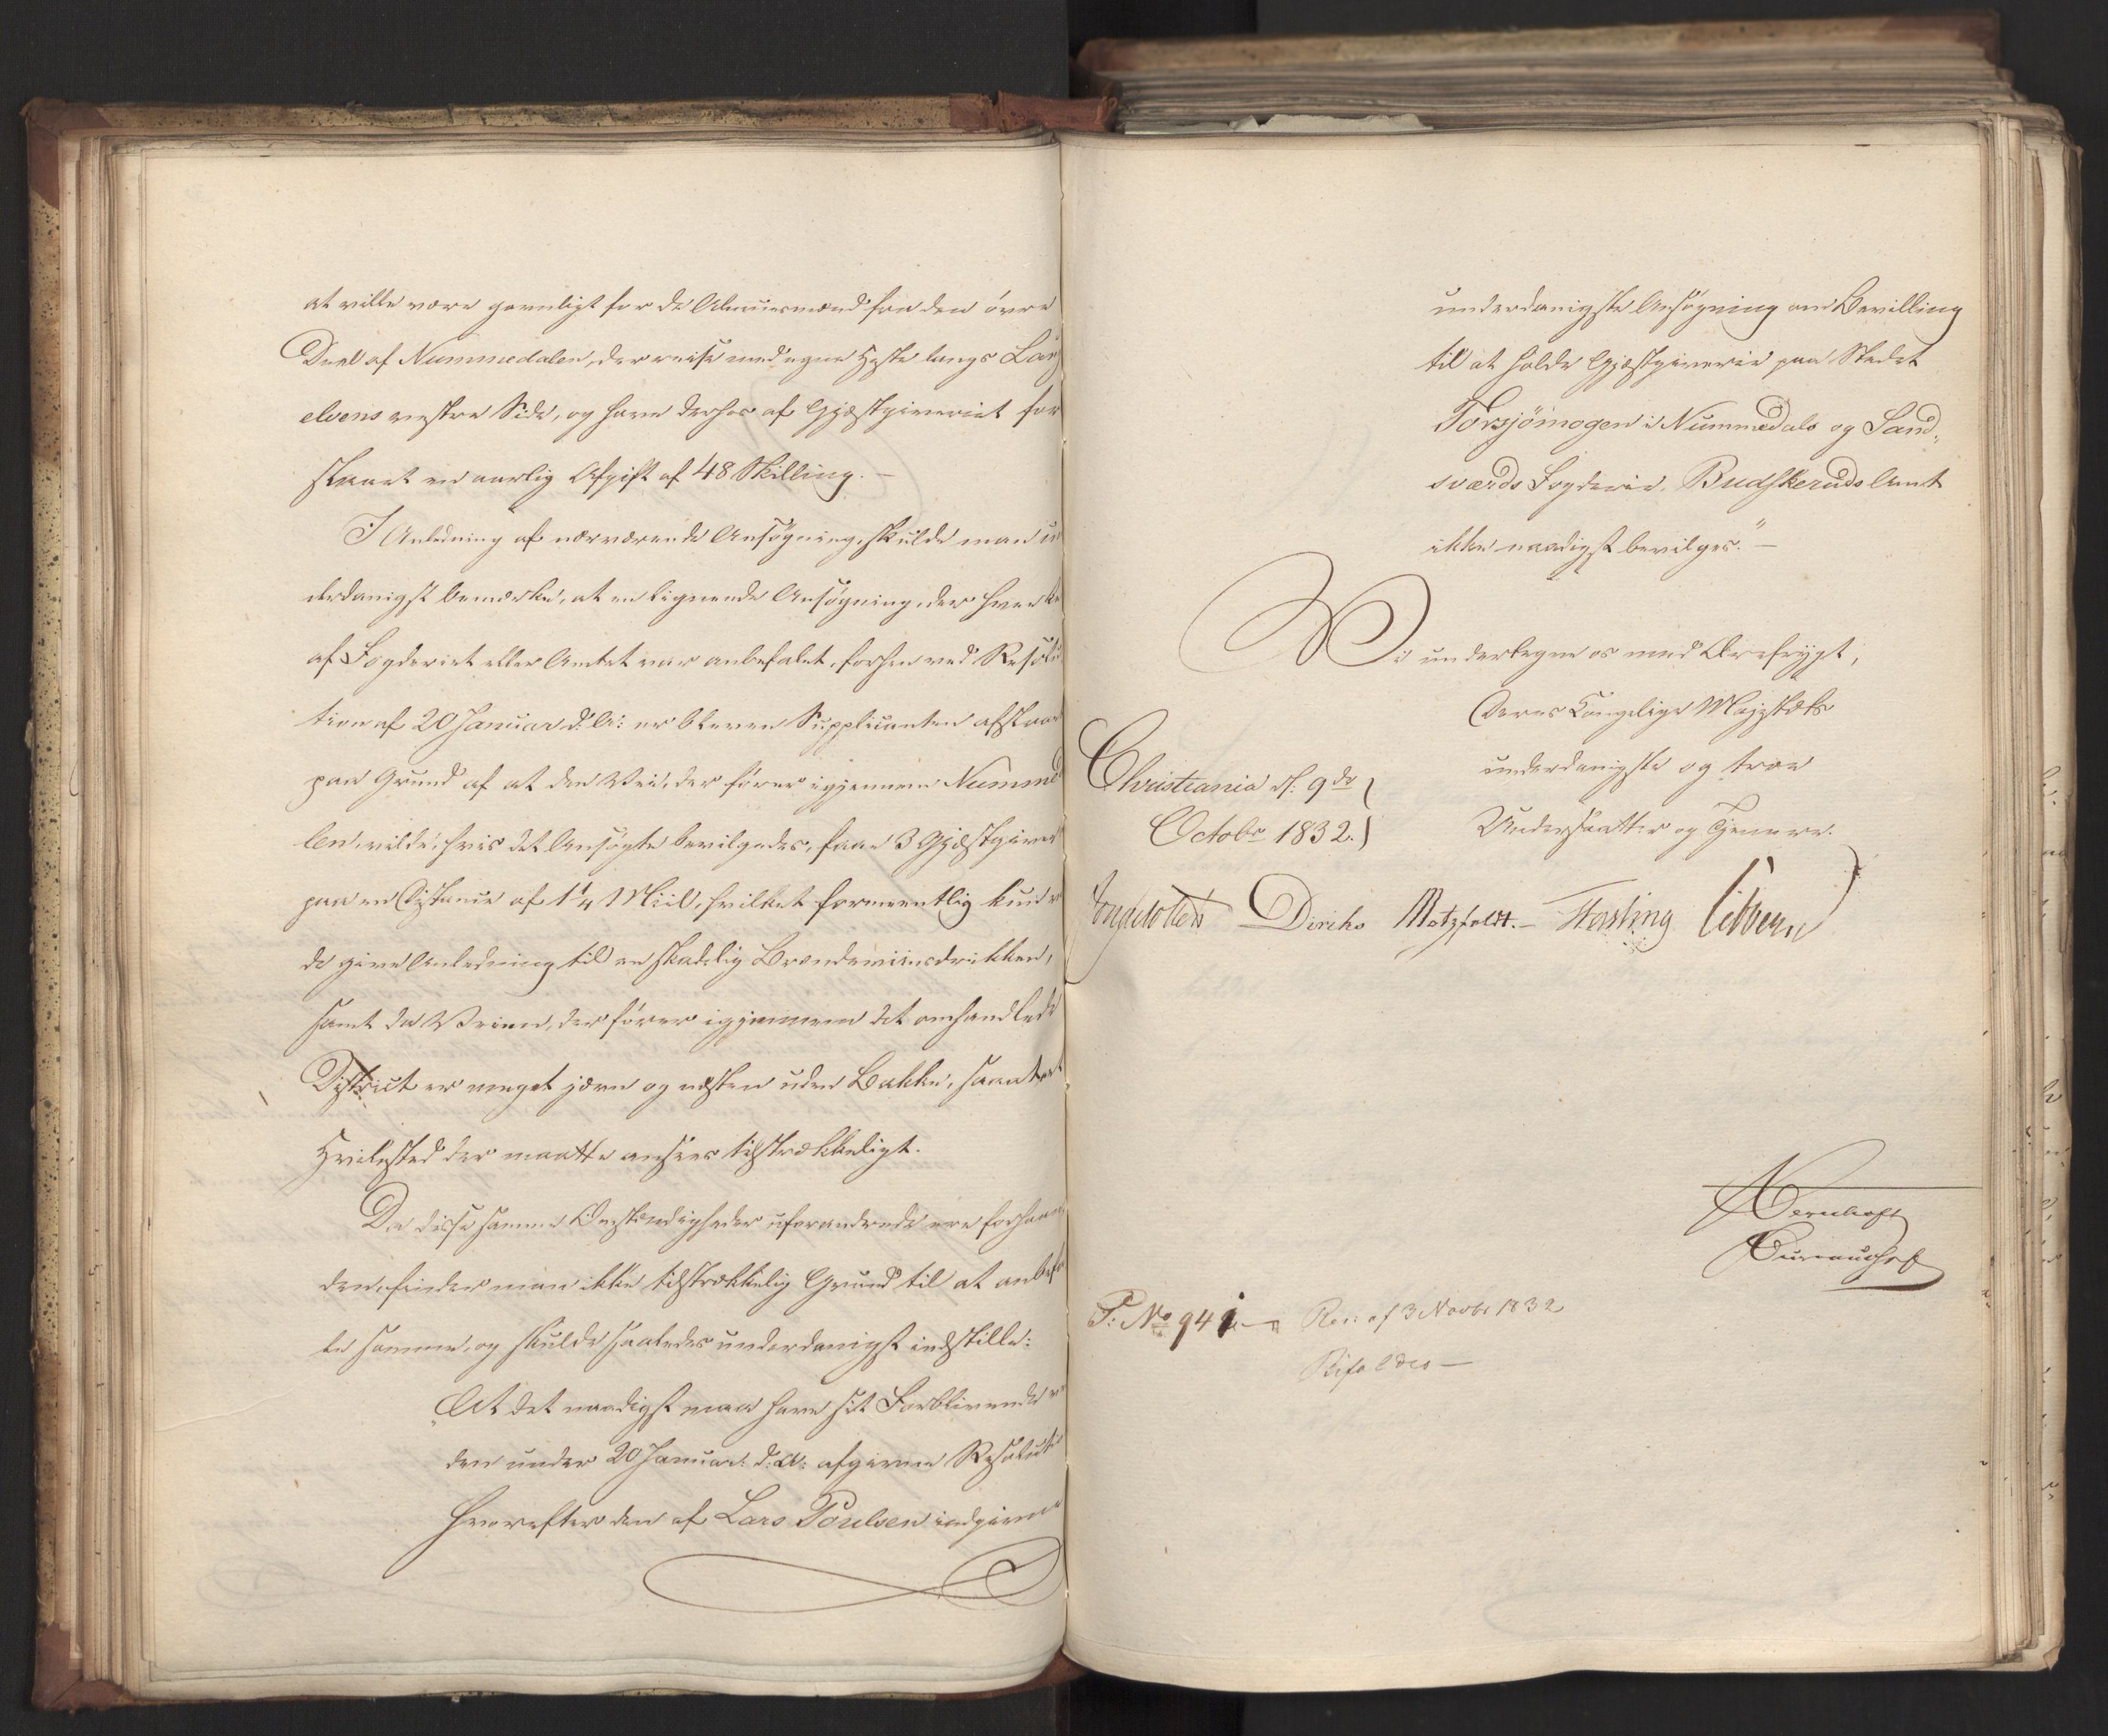 at ville være gavnligt for de Almuesmænd fra den øvre
Deel af Nummedalen, der reise med egne Heste langs Laug
elvens vestre Side, og have derhos af Gjæstgiveriet fore
slaaet en aarlig Afgift af 48 Skilling. –
I Anledning af nærværende Ansøgning, skulde man un
derdanigst bemærke, at en lignende Ansøgning, der hverken
af Fogderiet eller Amtet var anbefalet, forhen ved Resolu
tion af 20 Januar d: A: er bleven Supplicanten afslaaet
paa Grund af at den Vei, der fører igjennem Nummeda
len, vilde, hvis det Ansøgte bevilgedes, faae 3 Gjæstgiverier
paa en Distance af 1¼ Miil, hvilket formeentlig kun
de give Anledning til en skadelig Brændeviinsdrikken,
samt da Veien, der fører igjennem det omhandlede
District er meget jævn og næsten uden Bakke, saa at et
Hvilested der maatte ansees tilstrækkeligt.
Da disse samme Omstændigheder uforandrede ere forhaan
den, finder man ikke tilstrækkelig Grund til at anbefa
le samme, og skulde saaledes underdanigst indstille:
„At det naadigst maa have sit Forblivende ved
den under 20 Januar d: A: afgivne Resolution
hvorefter den af Lars Poulsen indgivne
underdanigste Ansøgning om Bevilling
til at holde Gjæstgiverie paa Stedet
Torsjömogen i Nummedals og Sand„
sværds Fogderie, Budskeruds Amt
ikke naadigst bevilges.“ –
Vi undertegne os med Ærefrygt,
Deres Kongelige Majestæts
underdanigste og troe
Christiania d: 9de
Octobr 1832.
Undersaatter og Tjenere.
Diriks Motzfeldt. – Fasting Sibbern
Bureauchef
P: No 941 – Res: af 3 Novbr 1832
Bifaldes –